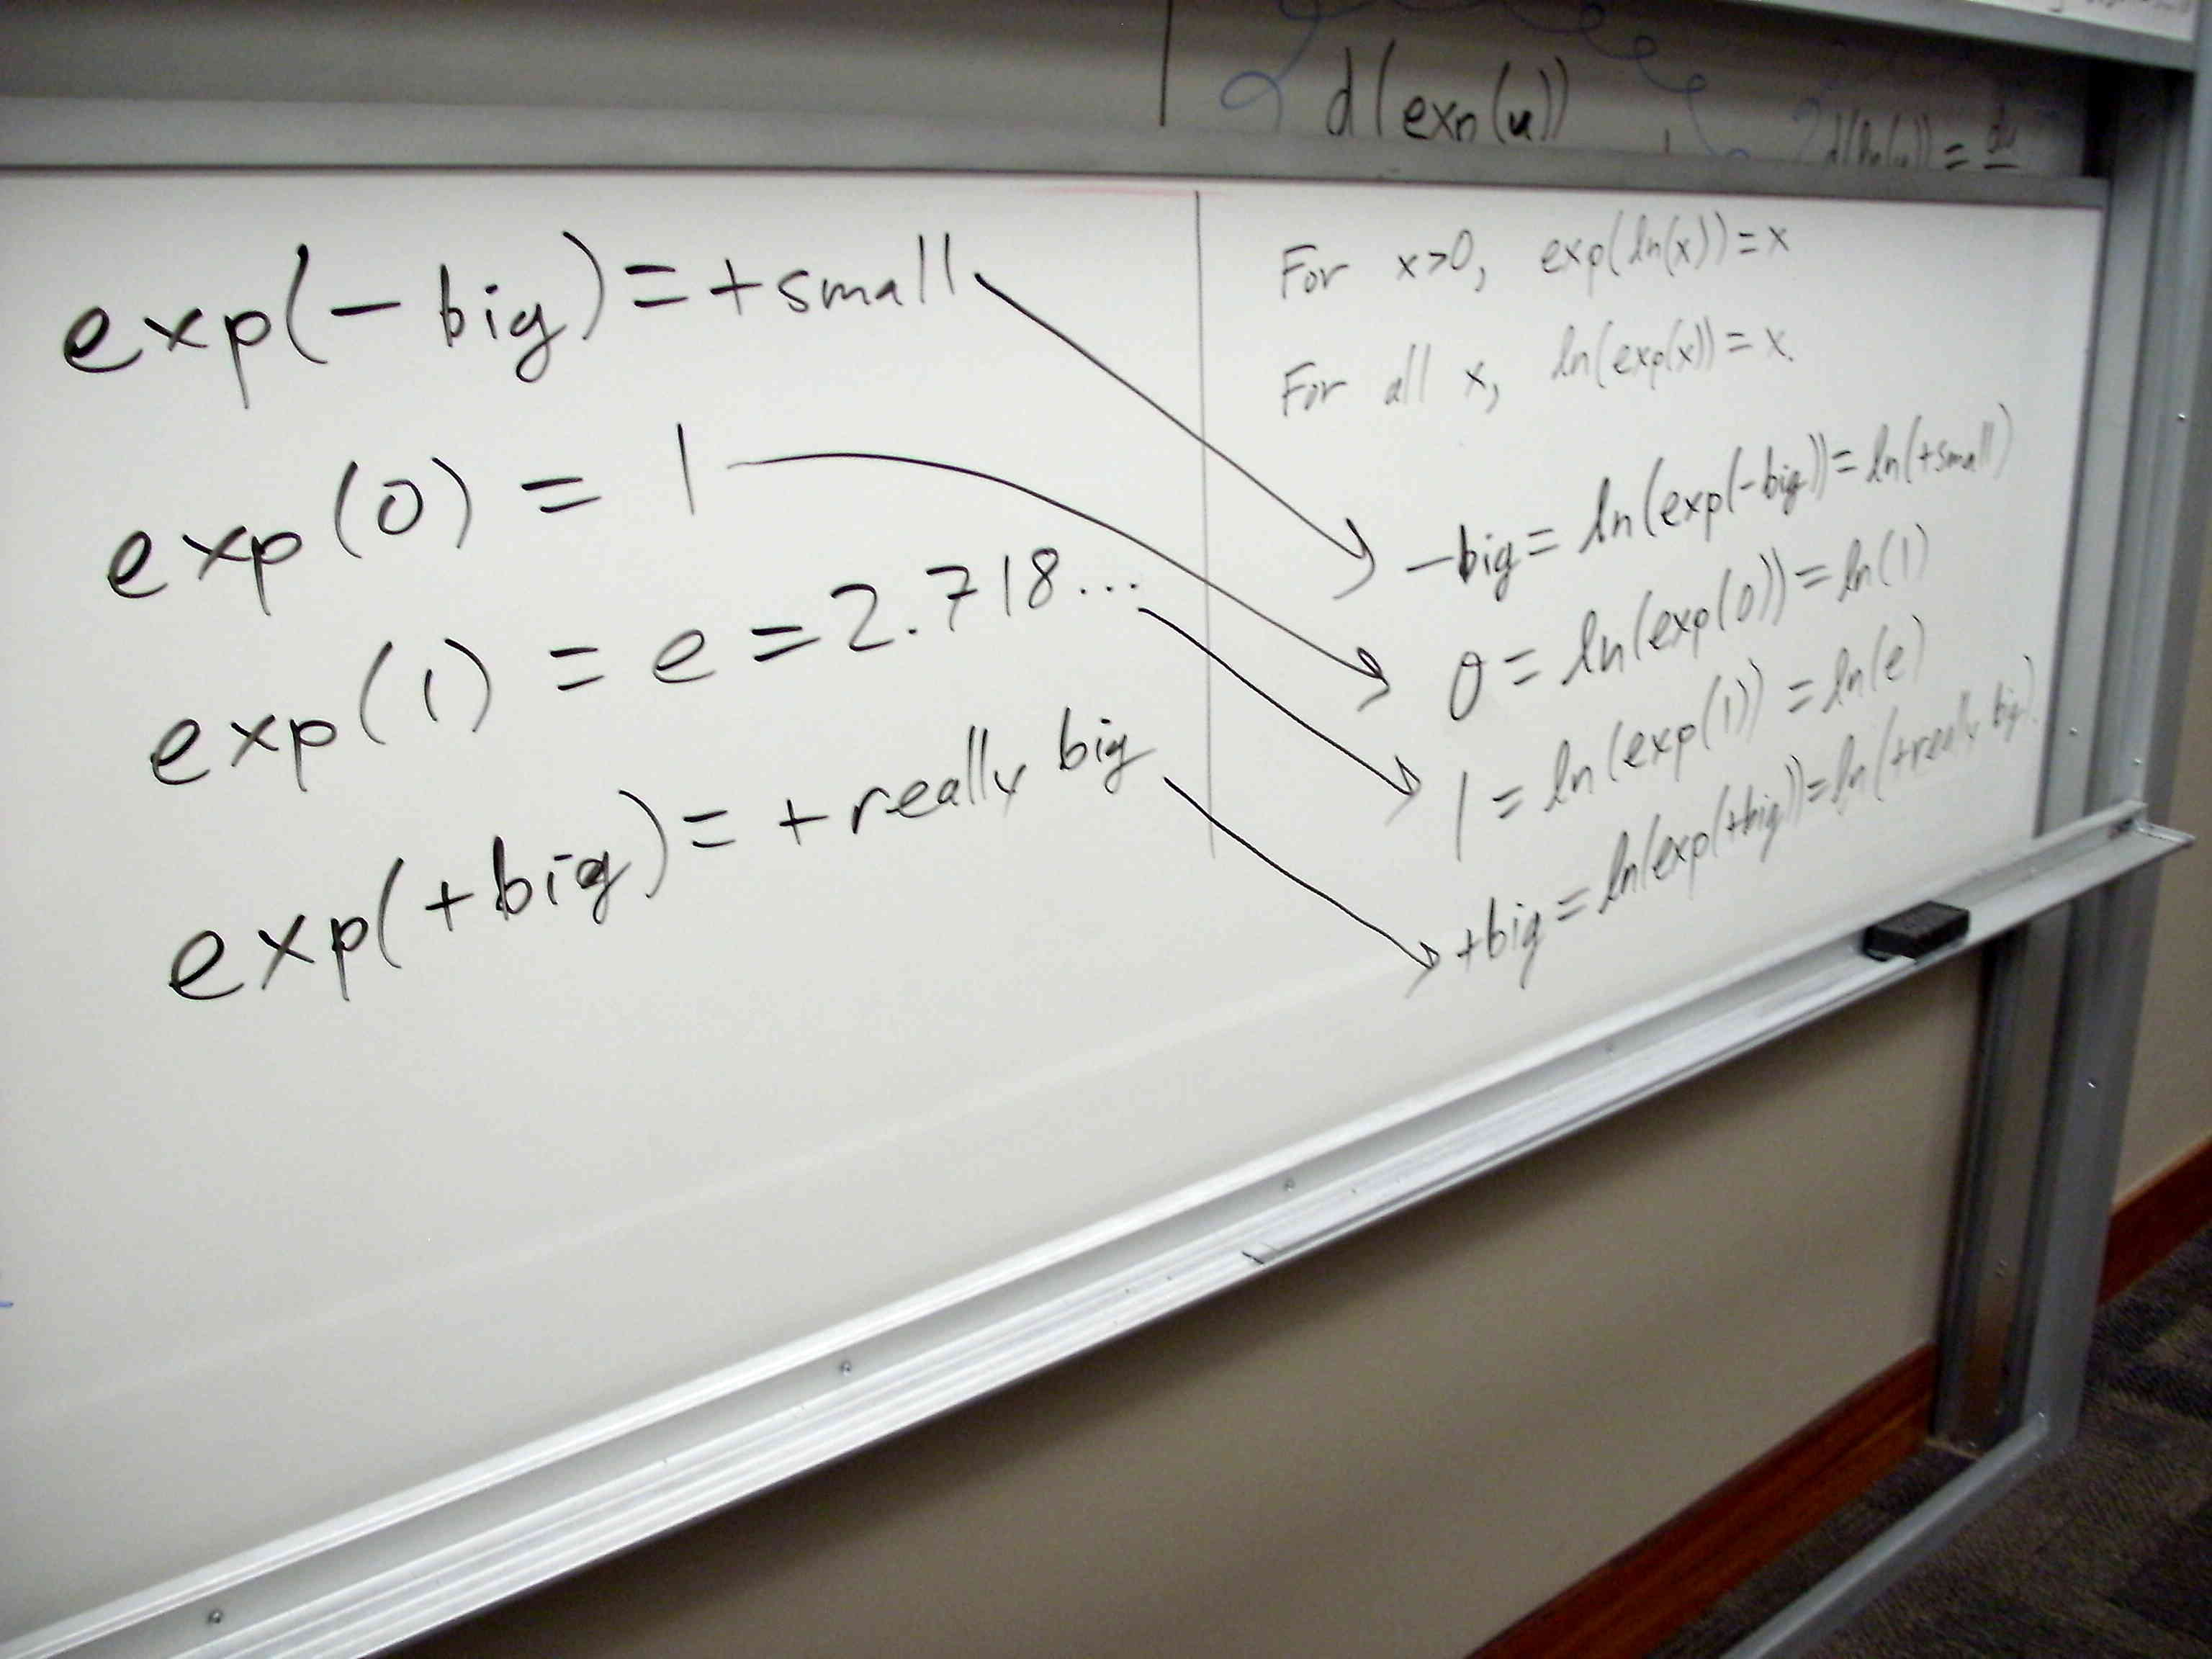 d(exp(u))
d(ln(u)) = du
exp(- big) = + small
exp(0) = 1
exp(1) = e = 2.718...
exp(+big) = + really big
For x>0, exp(ln(x)) = x
For all x, ln(exp(x)) = x.
-big = ln(exp(-big)) = ln(+small)
0 = ln(exp(0)) = ln(1)
1 = ln(exp(1)) = ln(e)
+big = ln(exp(+big)) = ln(+really big).